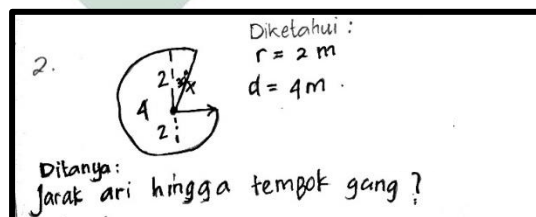 Diketahui :
2.
r = 2 m
d = 4 m .
2
x
4
2
Ditanya :
Jarak ari hingga tembok gang ?